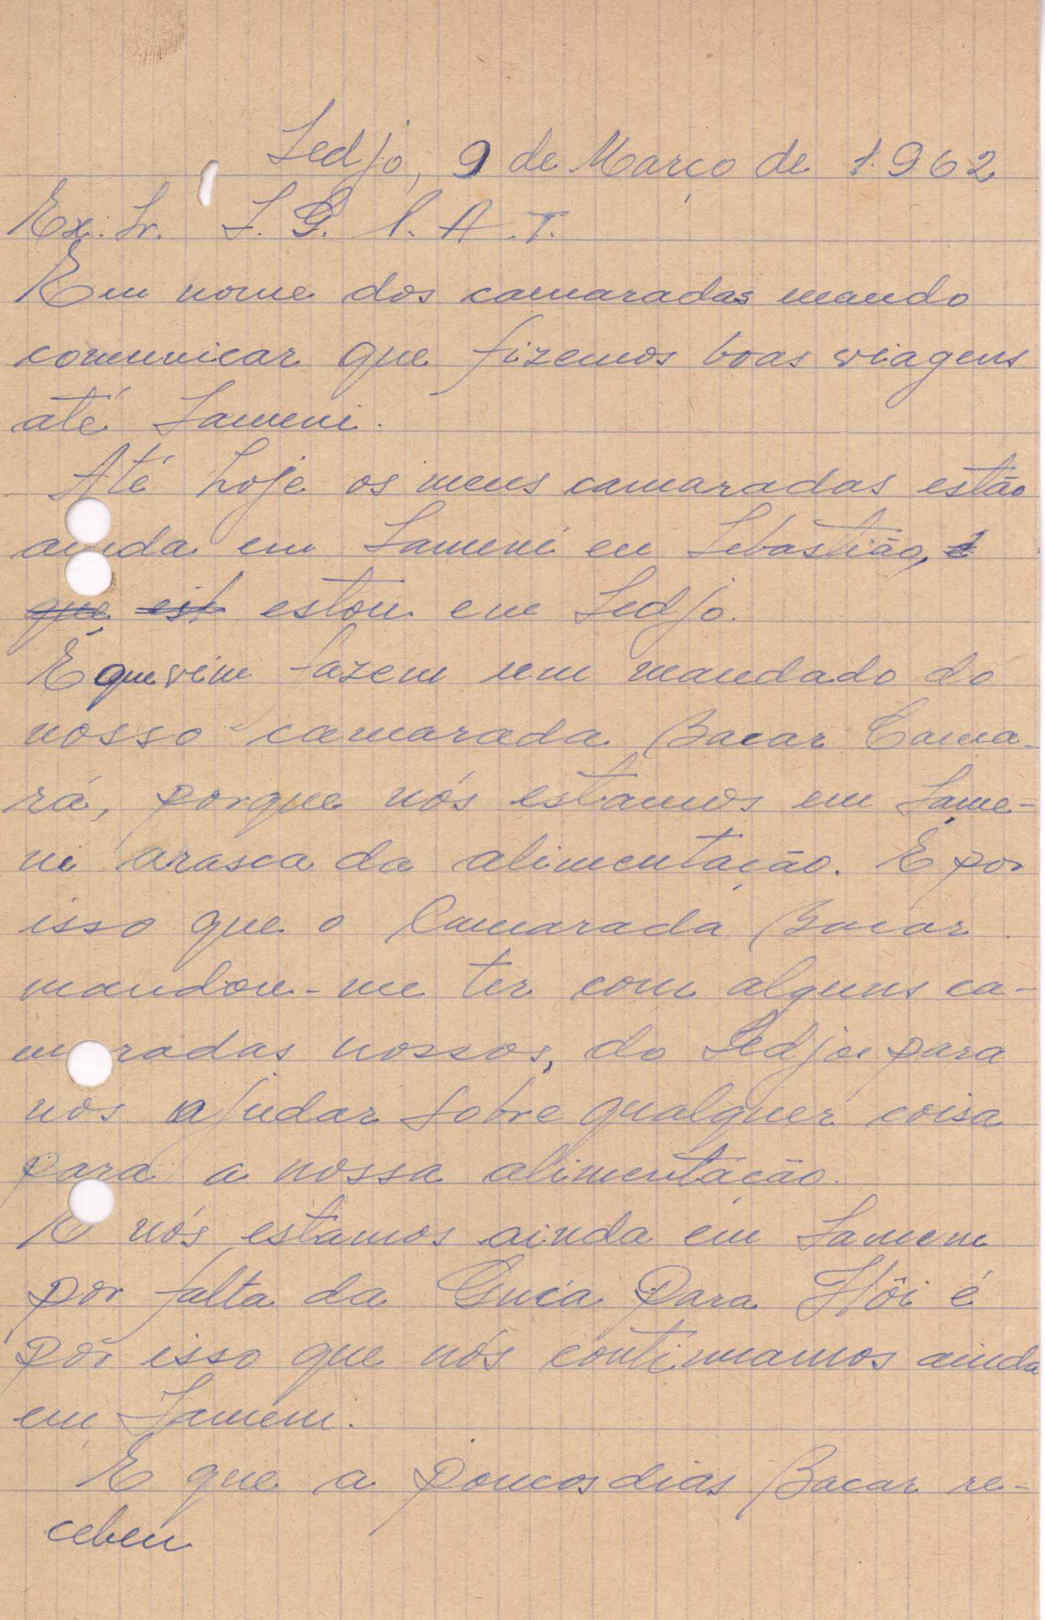 Ledjo, 9 de Março de 1.962
Ex. Sr. S. G. P. A. I.
Em nome dos camaradas mando
comunicar que fizemos boas viagens
até Sameni.
Até hoje os meus camaradas estão
ainda em Sameni eu Sebastião,
que est estou em Ledjo.
É que vim fazem um mandado do
nosso camarada Bacar Cama-
rá, porque nós estamos em Same-
ni arasca da alimentação. É por
isso que o Camarada Bacar
mandou-me ter com alguns ca-
maradas nossos, do Ledjo para
nos ajudar sobre qualquer coisa
para a nossa alimentação.
E nós estamos ainda em Sameni
por falta da Guia para Hôi é
por isso que nós continuamos ainda
em Sameni.
E que a poucos dias Bacar re-
cebeu